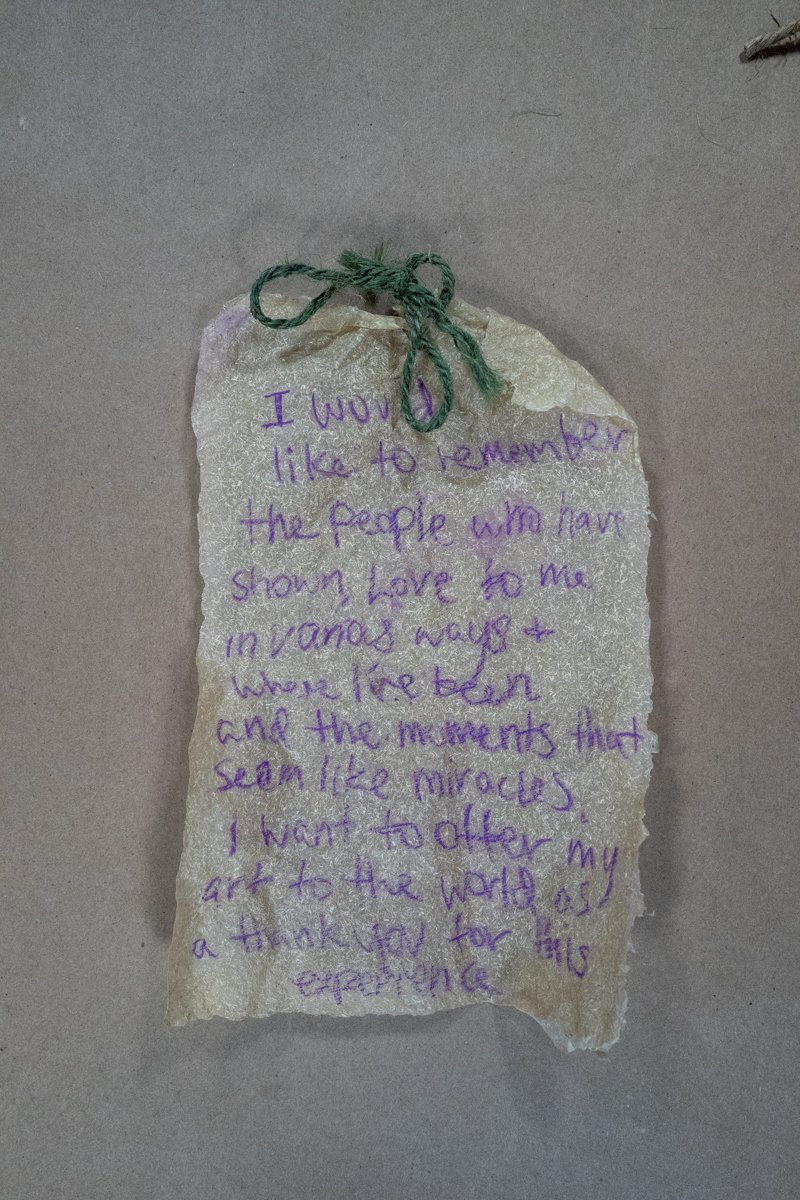 I would
like to remember
the people who have
shown love to me
in varias ways +
where I've been
and the moments that
seem like miracles.
I want to offer my
art to the world as
a thank you for this
experience